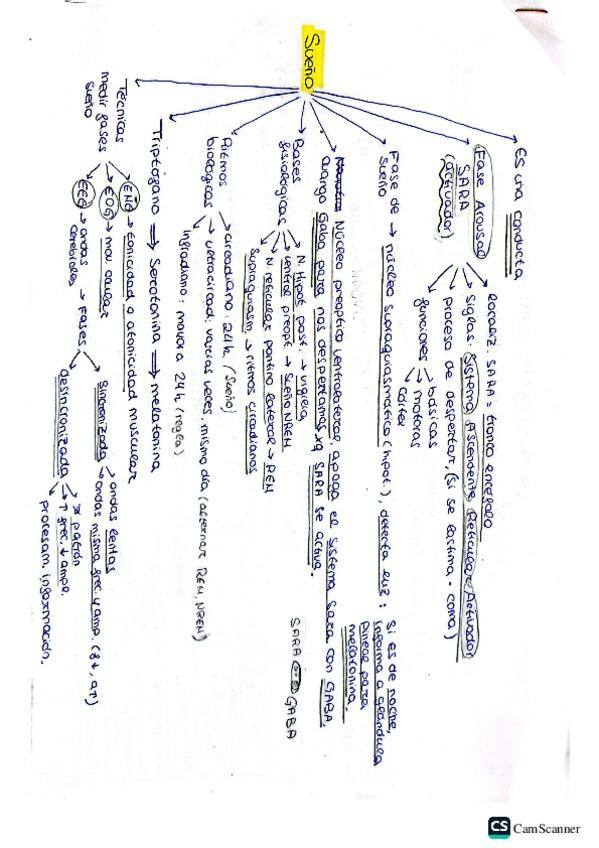 Sueño
Es una conducta
Fase Arousal
SARA
(activador)
localiz. SARA: tronco encéfalo
Siglas: Sistema Ascendente Reticular Activador
proceso de despertar, (si se lastima - coma)
funciones
básicas
motoras
Fase de
sueño
núcleo supraquiasmático (hipot.), detecta luz:
Si es de noche,
informa a glándula
Pineal para
melatonina.
Núcleo preoptico ventrolateral: apaga el sistema SARA con GABA.
luego Gaba para nos despertamos xq SARA se activa.
SARA
GABA
Bases
fisiológicas
N. Hipot. post. → vigilia
ventral preopt → Sueño NREM
N. reticular pontino lateral → REM
Supraquiasm → ritmos circadianos
Ritmos
biológicos
circadiano: 24h. (sueño)
ultracircad: varias veces, mismo día (alternar REM, NREM)
Infradiano: mayor a 24h (regla)
Triptógano → Serotonina → melatonina
Técnicas
medir fases
sueño
EMG → tonicidad o atonicidad muscular
EOG → mov. ocular
EEG → ondas
cerebrales → Fases
Sincronizada
ondas lentas
ondas misma frec. y amp.
desincronizada
patrón
↑ frec. ↓ amp.
procesam. información.
CS CamScanner